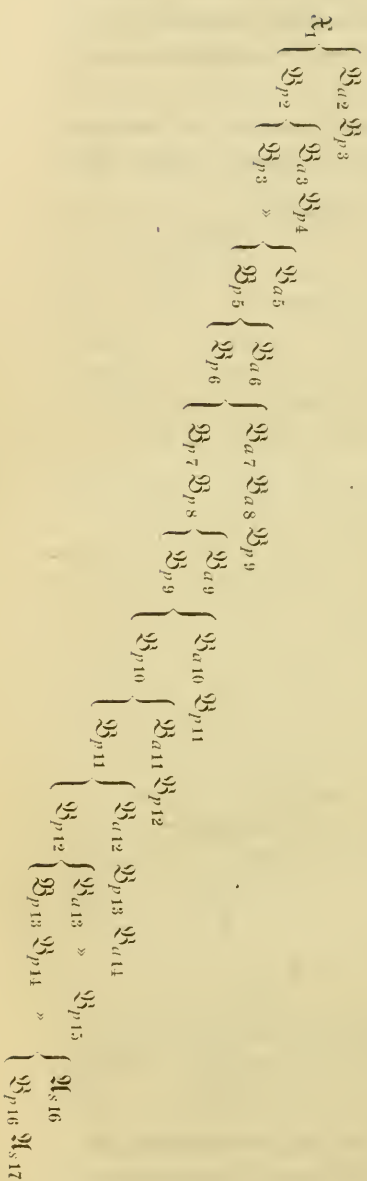 𝔛1 { 𝔅a2 𝔅p3
𝔅p2 { 𝔅a3 𝔅p4
𝔅p3 » { 𝔅a5
𝔅p5 { 𝔅a6
𝔅p6 { 𝔅a7 𝔅a8 𝔅p9
𝔅p7 𝔅p8 { 𝔅a9
𝔅p9 { 𝔅a10 𝔅p11
𝔅p10 { 𝔅a11 𝔅p12
𝔅p11 { 𝔅a12 𝔅p13 𝔅a14
𝔅p12 { 𝔅a13 » 𝔅p15
𝔅p13 𝔅p14 » { 𝔄s16
𝔅p16 𝔄s17